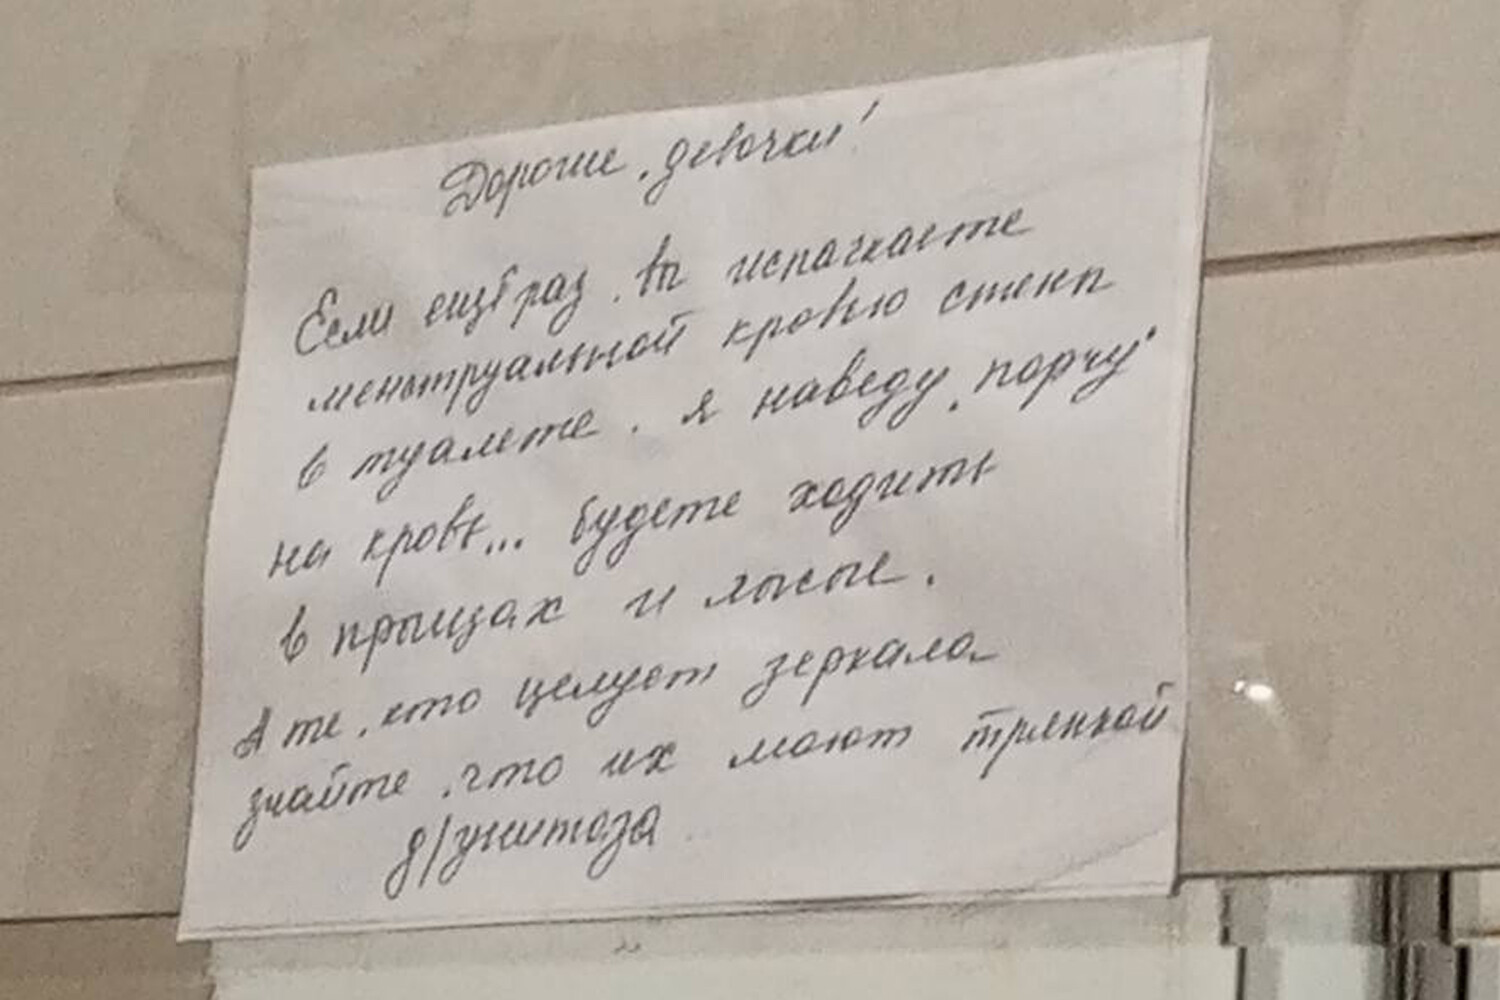 Дорогие, девочки!
Если ещё раз, вы испачкаете
менструальной кровью стены
в туалете, я наведу, порчу
на кровь... будете ходить
в прыщах и лысые.
А те, кто целует зеркала
знайте, что их моют тряпкой
д/унитаза